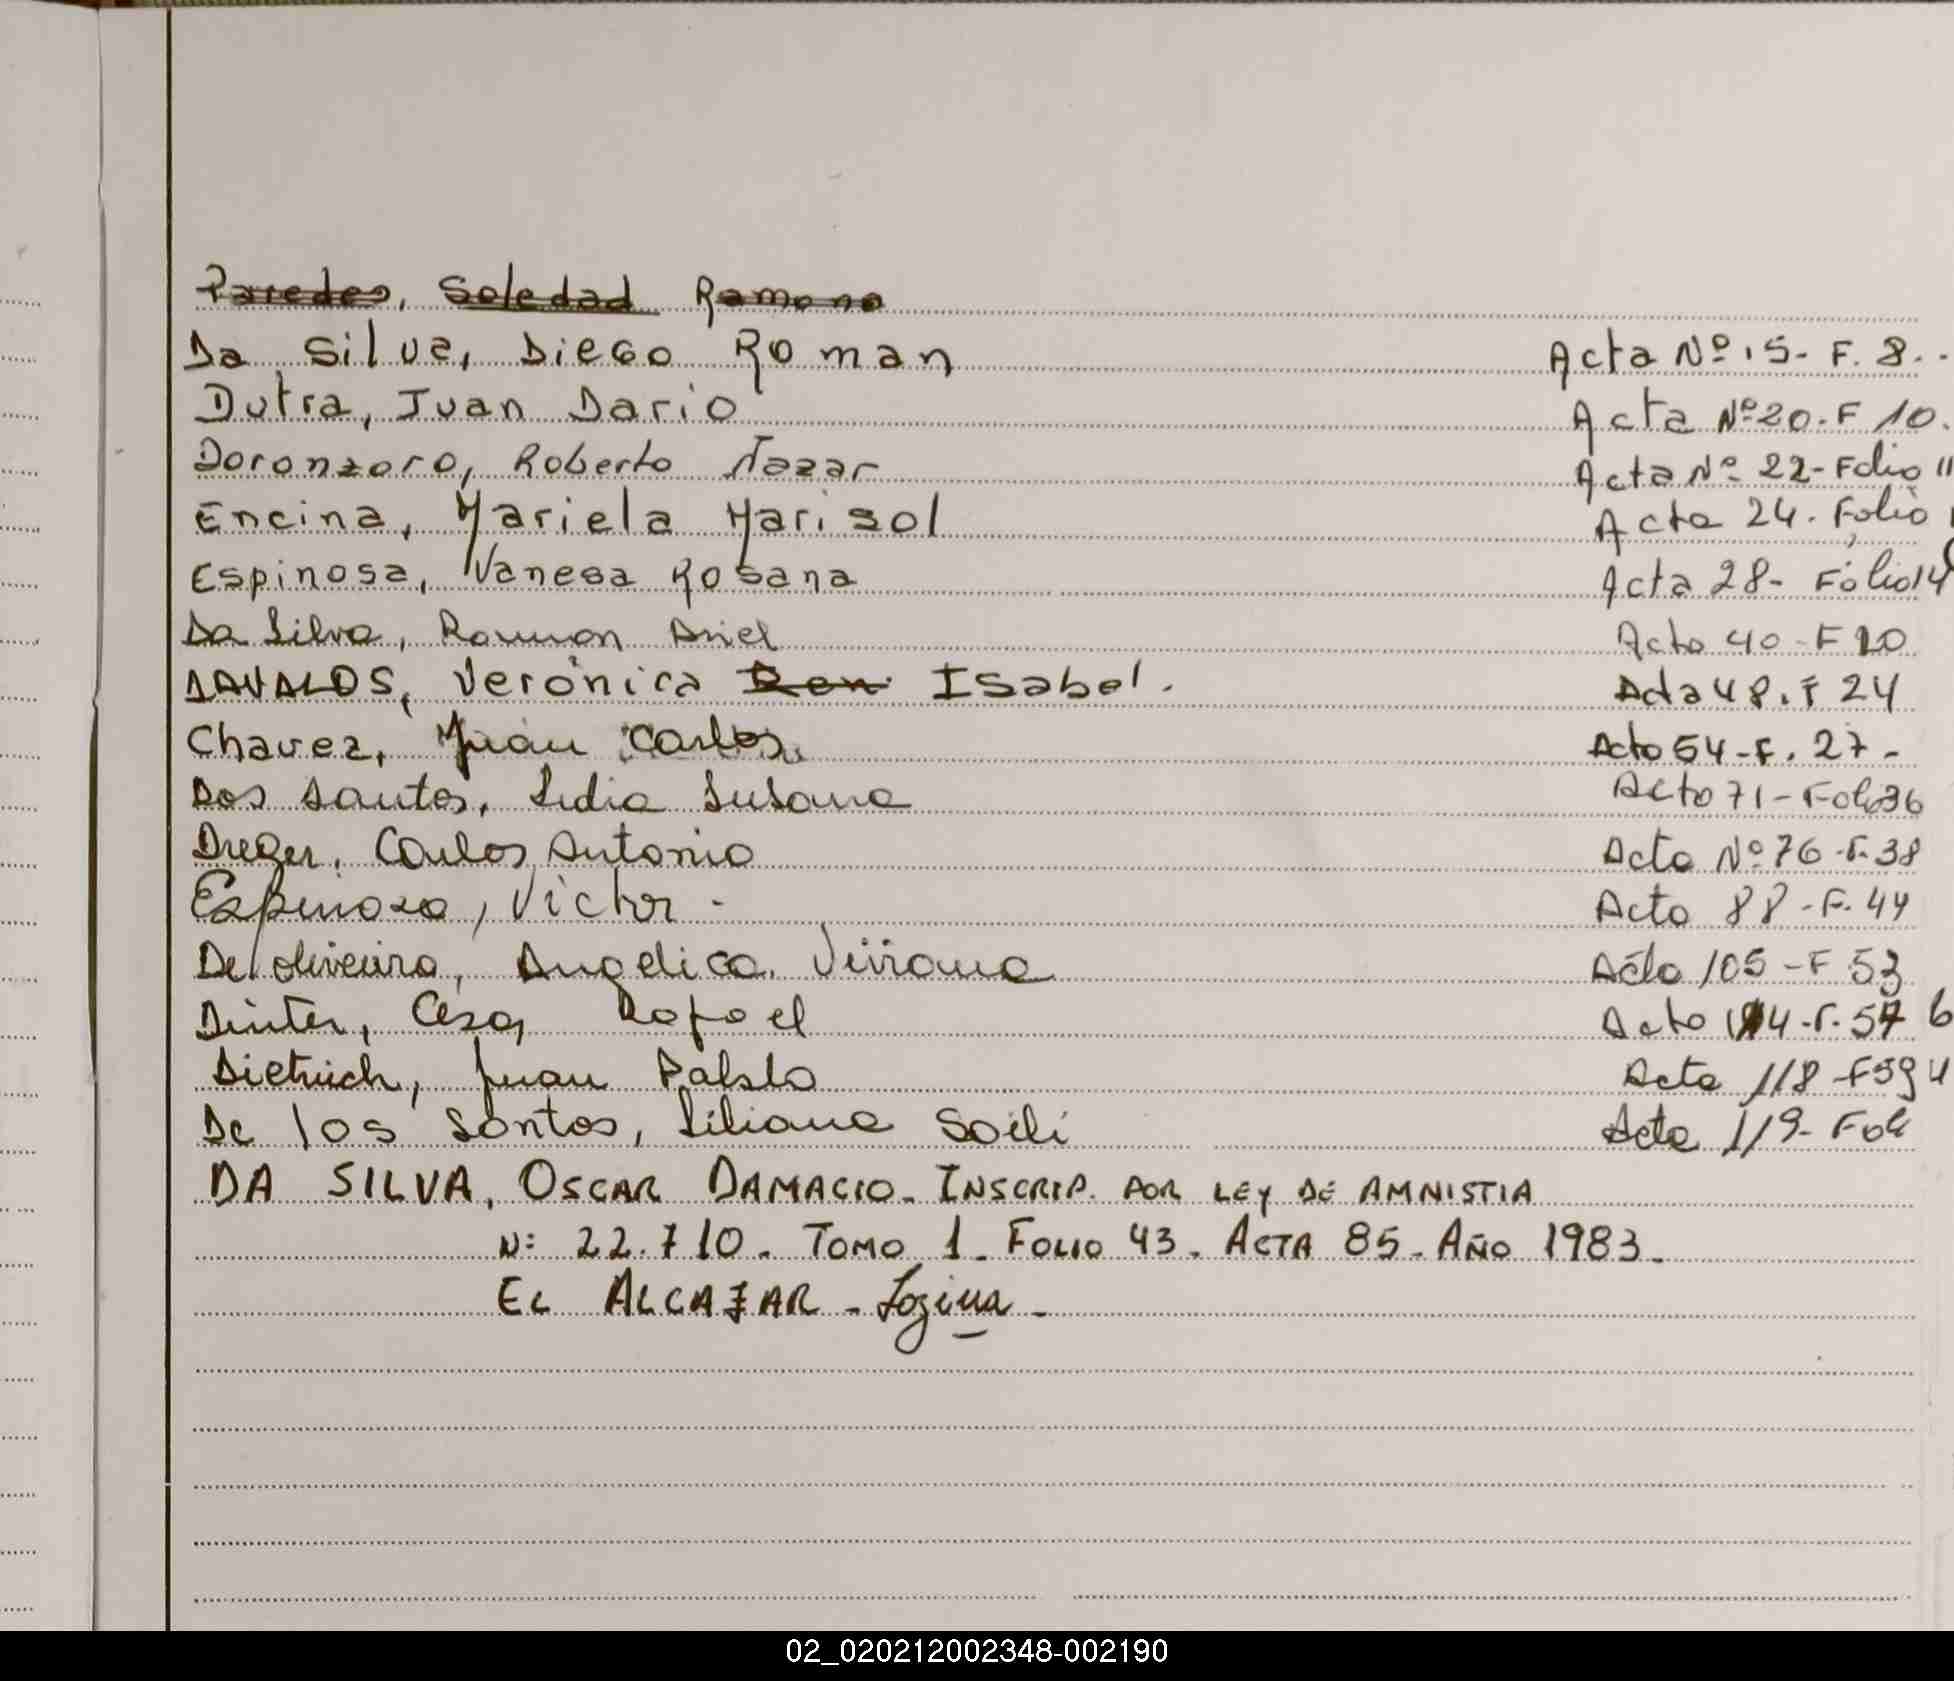 Paredes, Soledad Ramona
Da Silva, Diego Roman Acta Nº 15- F. 8..
Dutra, Juan Dario Acta Nº 20. F 10.
Doronzoro, Roberto Nazar Acta Nº 22- Folio 11
Encina, Mariela Marisol Acta 24. Folio
Espinosa, Vanesa Rosana Acta 28- Folio 14
Da Silva, Ramon Ariel Acta 40-F 20
DAVALOS, Verónica Isabel. Acta 48. F 24
Chavez, Juan Carlos Acta 54-F. 27-
Dos Santos, Lidia Susana Acta 71-Folio 36
Dreger, Carlos Antonio Acta Nº 76-F. 38
Espinoza, Victor - Acta 88-F. 44
De oliveira, Angelica Viviana Acta 105-F 53
Dinter, Cesar Rafael Acta 114-F. 57
Dietrich, Juan Pablo Acta 118-F 59
De los Santos, Liliana Soili Acta 119- Fol
DA SILVA, OSCAR DAMACIO. INSCRIP. POR LEY DE AMNISTIA
N: 22.710. TOMO 1. FOLIO 43. ACTA 85. AÑO 1983.
EL ALCAZAR -
02_020212002348-002190